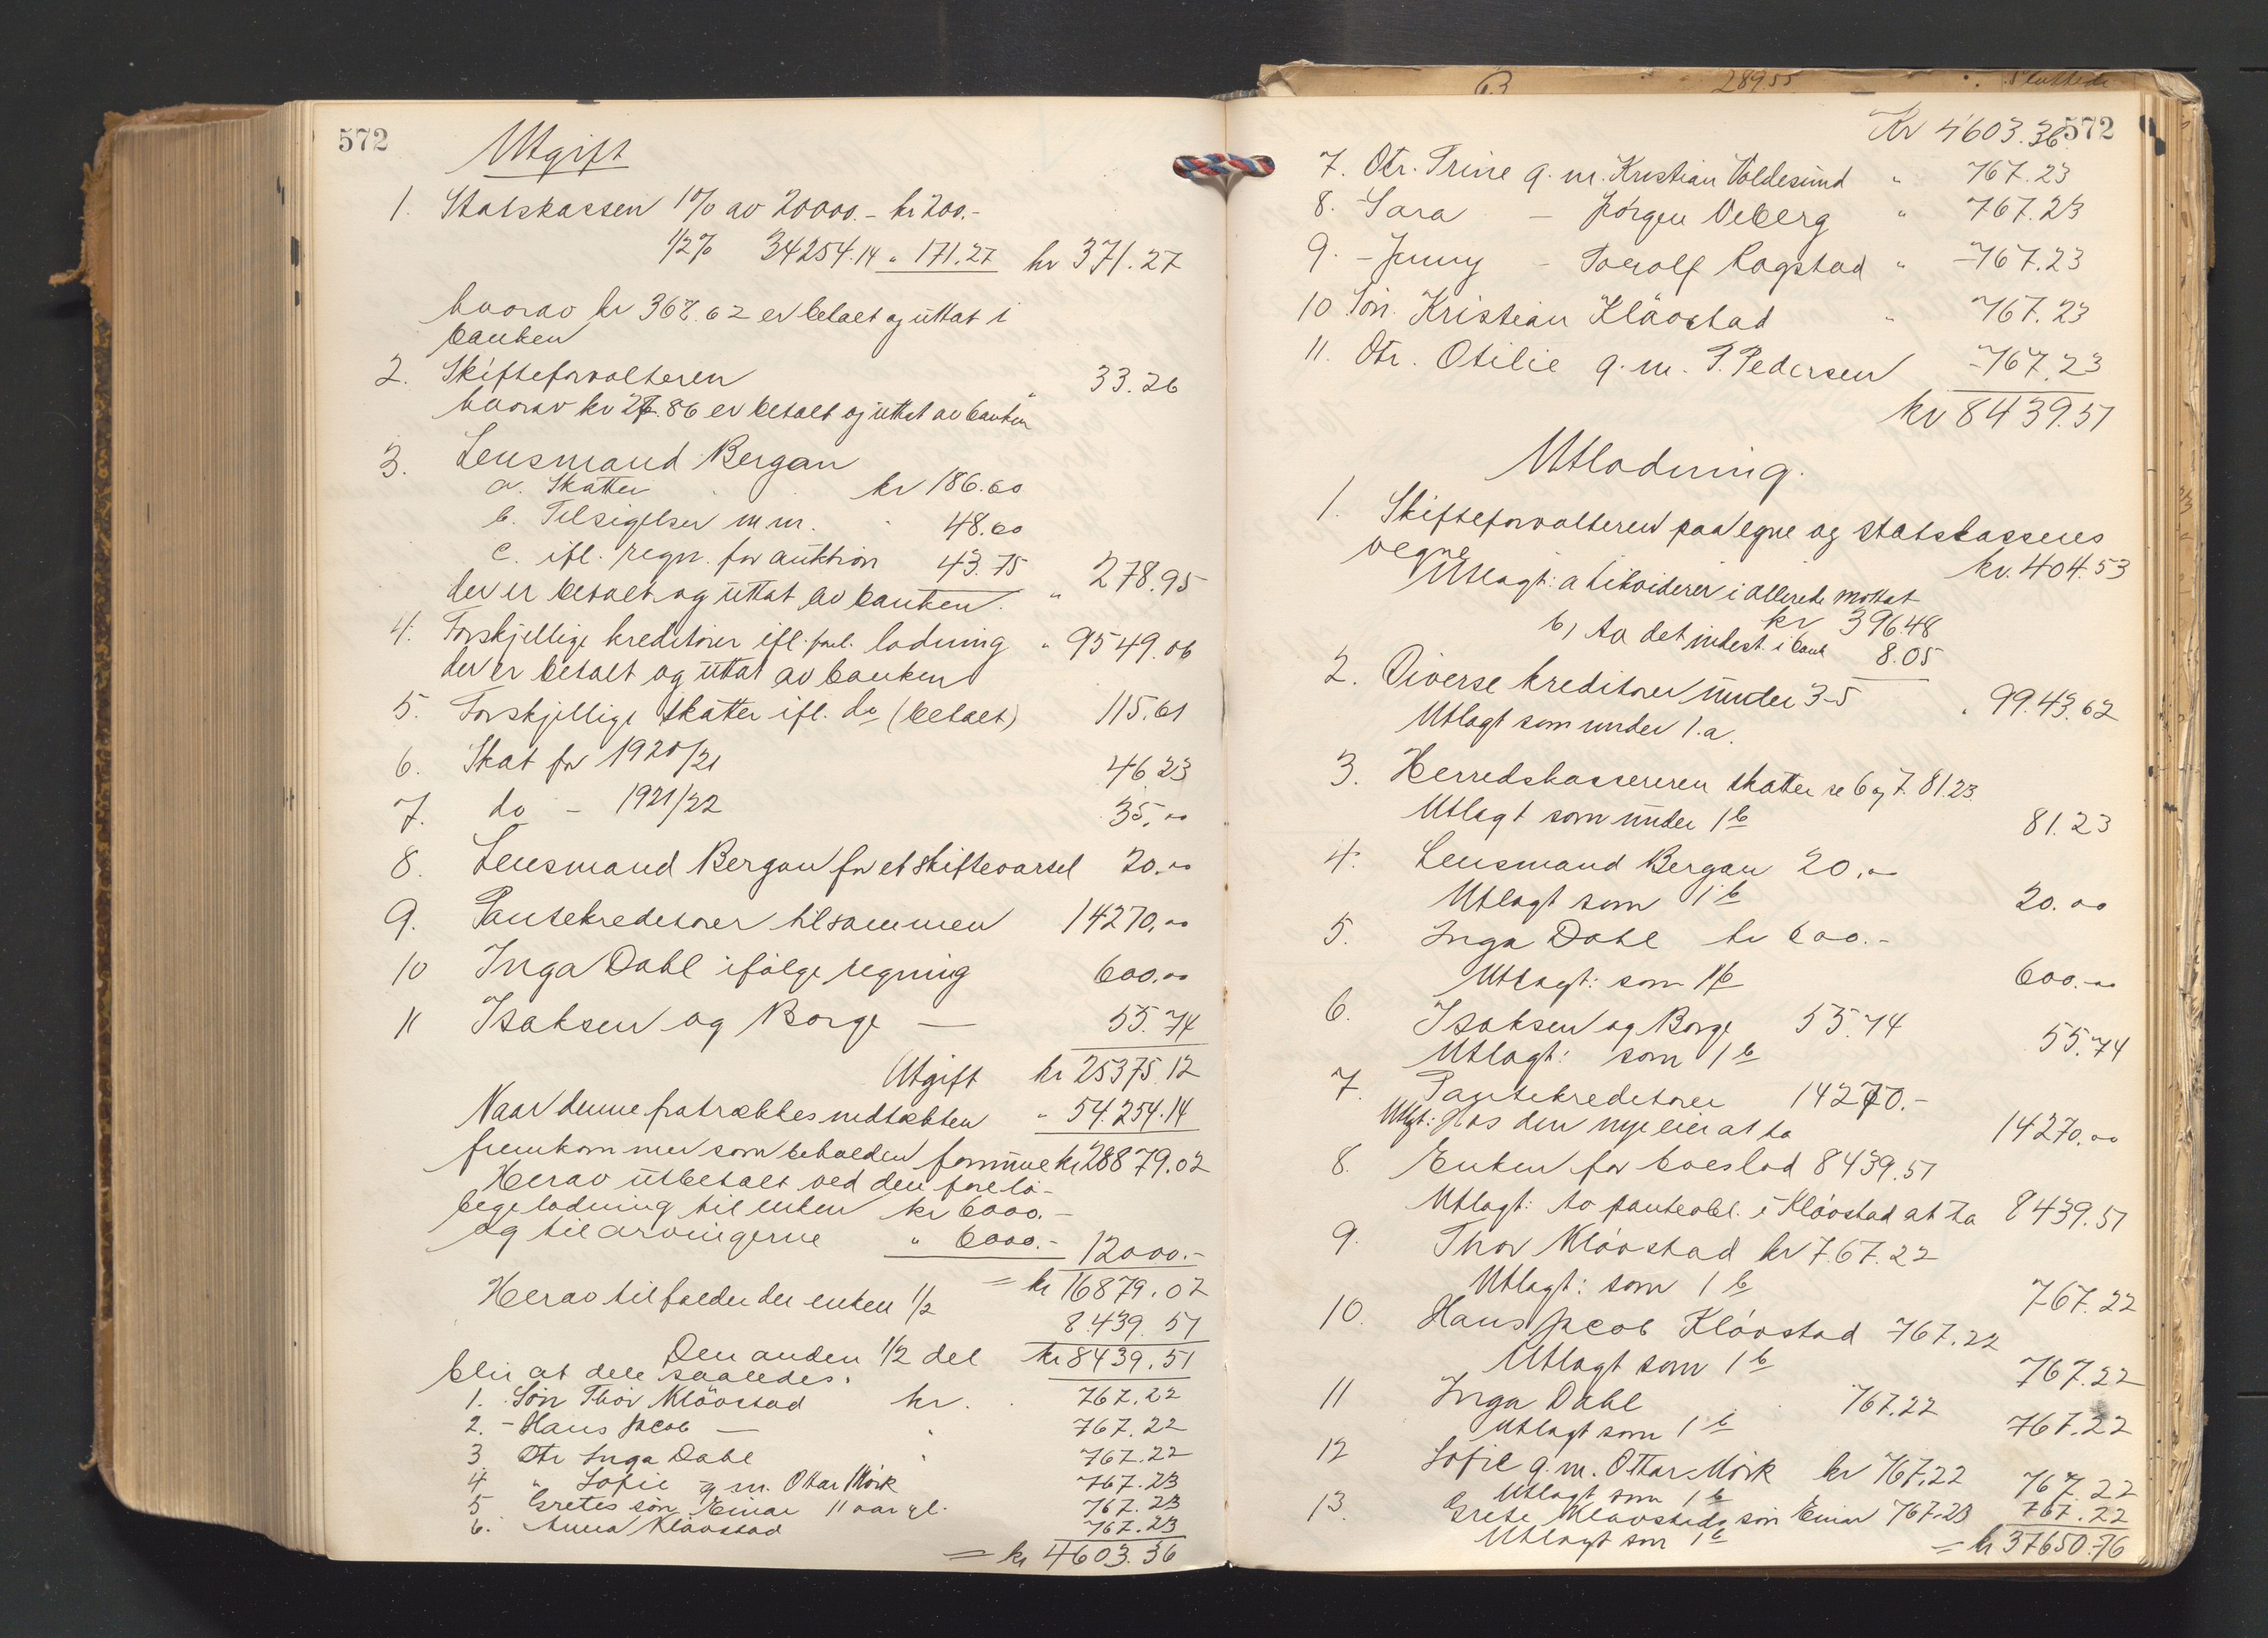 572
Utgift
1. Statskassen 1% av 20000.- kr 200.-
1/2% 34254.14 " 171.27 kr 371.27
hvorav kr 368.62 er betalt og uttat i
banken
2. Skifteforvalteren " 33.26
hvorav kr 27.86 er betalt og uttat av banken
3. Lensmand Bergan
a. Skatter kr 186.60
b. Tilsigelser m.m. " 48.60
c. ifl. regn. for auktion 43.75
der er betalt og uttat av banken. " 278.95
4. Forskjellige kreditorer ifl. forel. lodning " 9549.06
der er betalt og uttat av banken
5. Forskjellige skatter ifl. do (betalt) 115.61
6. Skat for 1920/21 46 23
7. do - 1921/22 35,00
8. Lensmand Bergan for et skiftevarsel 20.00
9. Pantekreditorer tilsammen 14270,00
10 Inga Dahl ifølge regning 600.00
11 Isaksen og Borge — 55.74
Utgift kr 25375.12
Naar denne fratrækkes indtækten " 54.254.14
fremkommer som beholden formue kr 28879.02
Herav utbetalt ved den forelø-
bige lodning til enken kr 6000.-
og til arvingerne " 6000.- 12000.-
= kr 16879.02
Herav tilfalder der enken 1/2
8.439.51
Den anden 1/2 del kr 8439.51
blir at dele saaledes:
1. Søn Thor Kløvstad kr. 767.22
2. - Hans Jacob — " 767.22
3 Dtr Inga Dahl " 767.22
4 " Sofie g.m. Ottar Mørk 767.23
5 Gretes søn Einar 11 aar gl. 767.23
6. Anna Kløvstad 767.23
= kr 4603.36
Kr 4603.36 572
7. Dtr. Trine g.m. Kristian Valdesund " 767.23
8. Sara — Jørgen Veberg " 767.23
9. - Jenny — Torolf Hagstad " 767.23
10 Søn. Kristian Kløvstad " 767.23
11. Dtr. Otilie g.m. P. Pedersen 767.23
kr 8439.51
Utlodning.
1. Skifteforvalteren paa egne og statskassens
vegne kr. 404.53
Utlagt: a likviderer i allerede mottat
kr 396.48
b, ta det indest. i bank 8.05
2. Diverse kreditorer under 3-5 " 99.43.62
Utlagt som under 1.a.
3. Herredskassereren skatter se 6 og 7. 81.23
Utlagt som under 1b 81.23
4. Lensmand Bergan 20.00
Utlagt som 1b 20.00
5. Inga Dahl kr 600.-
Utlagt: som 1b 600.00
6. Isaksen og Borge 55.74
Utlagt: som 1b 55.74
7. Pantekreditorer 14270.-
Utlagt: Hos den nye eier at ta 14270.00
8. Enken for boeslod 8439.51
Utlagt: to panteobl. i Kløvstad at ta 8439.51
9. Thor Kløvstad kr 767.22
Utlagt: som 1b 767.22
10. Hans Jacob Kløvstad 767.22
Utlagt som 1b 767.22
11 Inga Dahl 767.22
Utlagt som 1b 767.22
12 Sofie g.m. Ottar Mørk kr 767,22
Utlagt som 1b 767.22
13. Grete Kløvstads søn Einar 767.23
Utlagt som 1b 767.22
= kr 37650.76